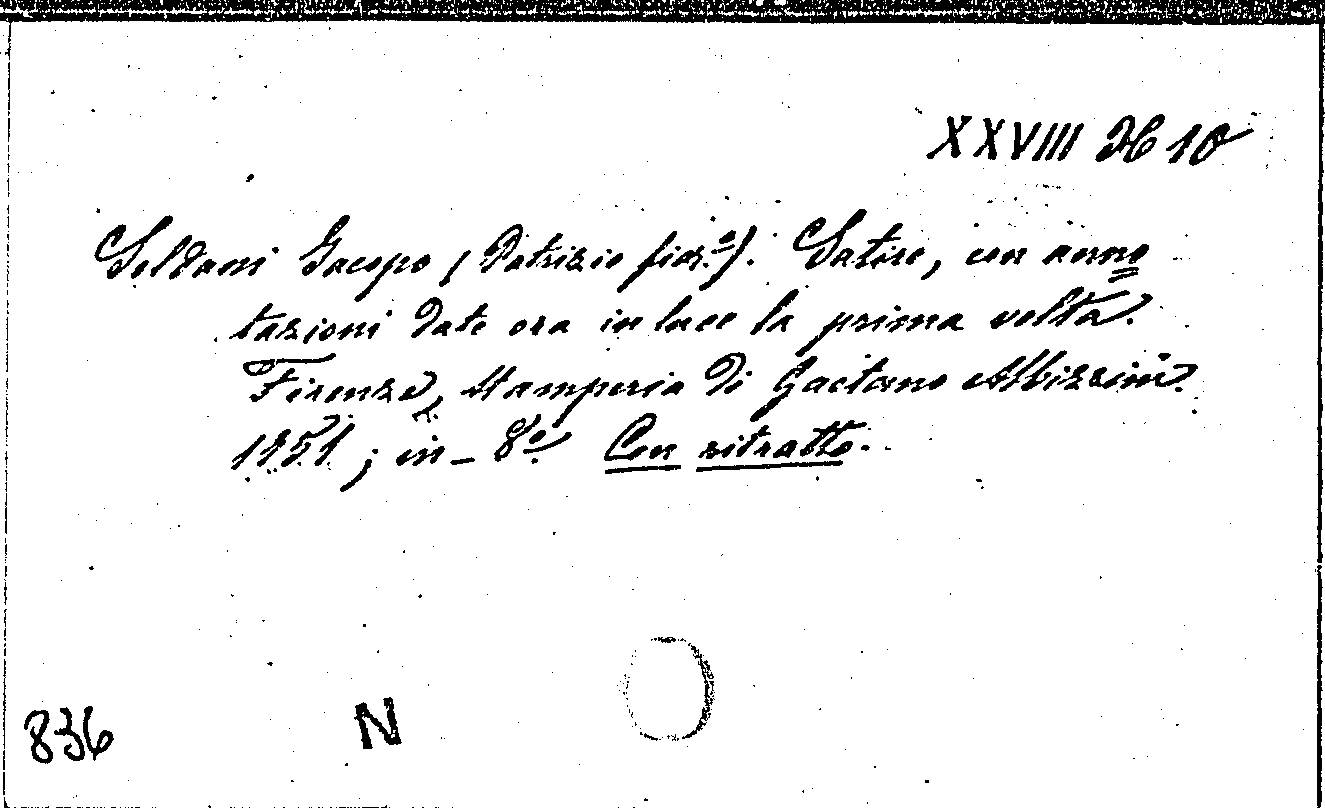 XXVIII H 10
Soldani Jacopo (Patrizio fior.º). Satire, con anno=
tazioni date ora in luce la prima volta.
Firenze, Stamperia di Gaetano Albizzini.
1751; in-8º. Con ritratto.
836 N